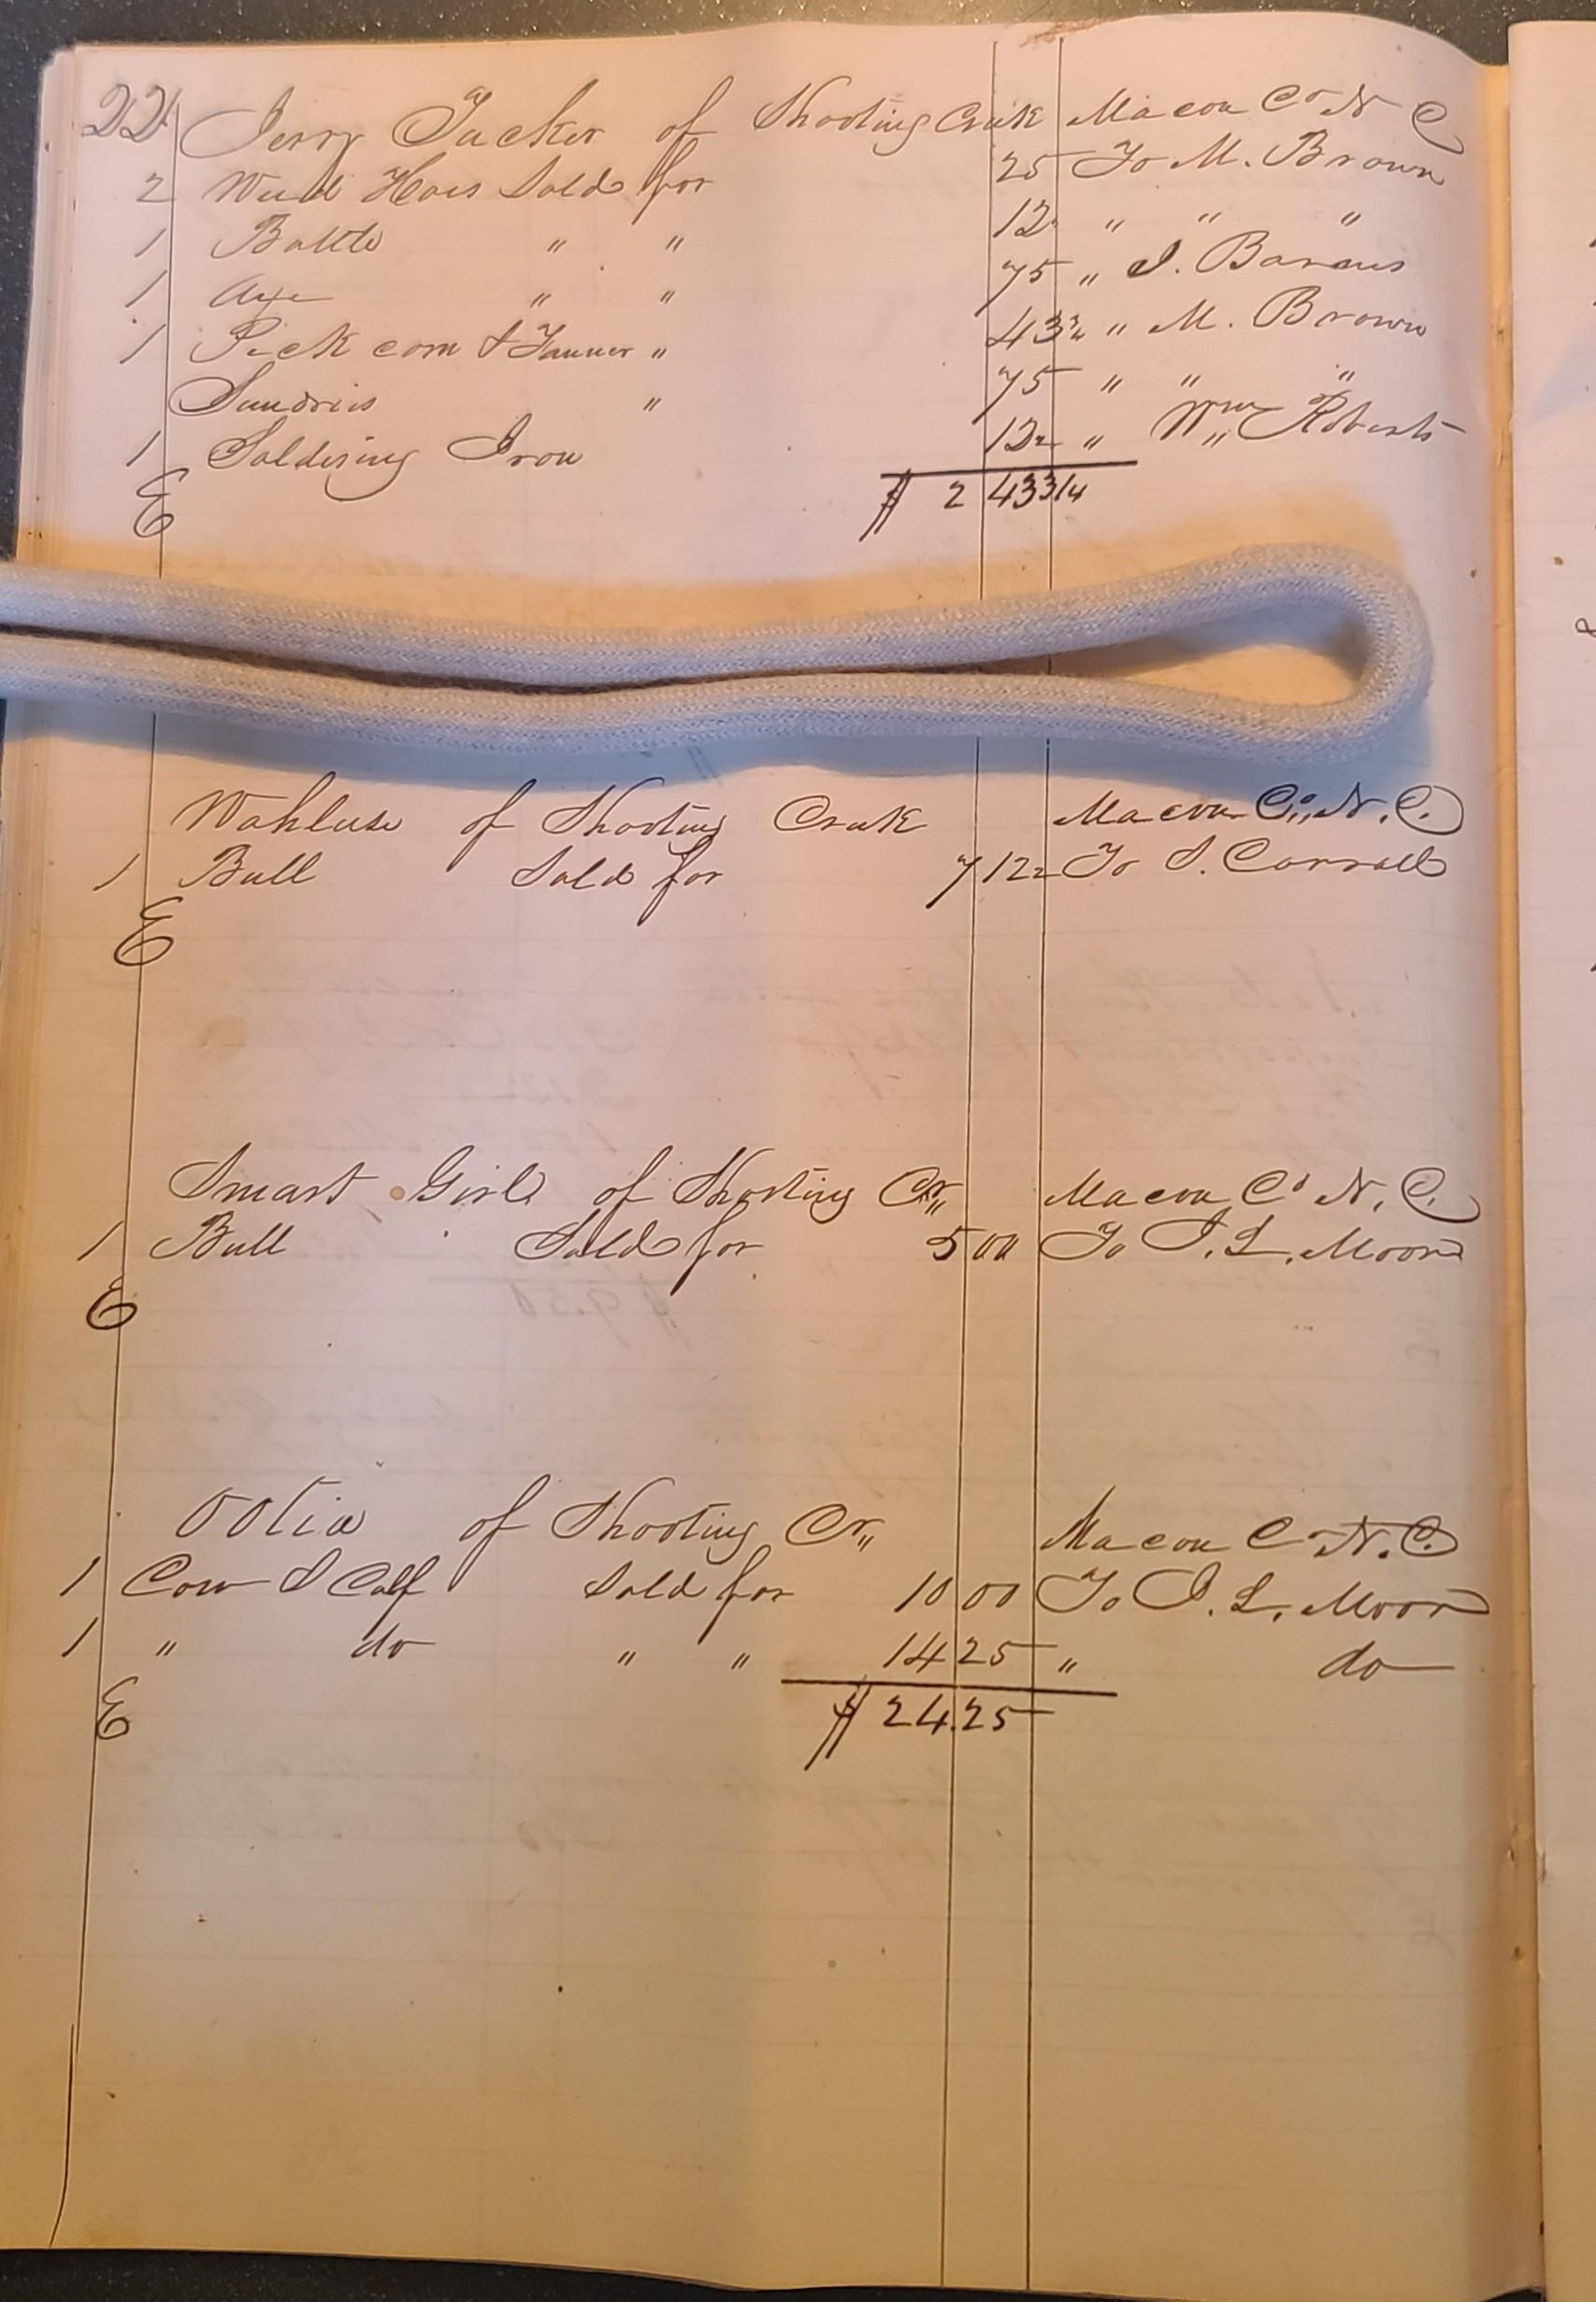 22 Jerry Tucker of Shooting Creek Macon Co N C
2 Weed Hoes Sold for 25 To M. Brown
1 Bottle " " 12 " " "
1 Axe " " 75 " J.
1 Peck corn & Fanner " 43 3/4 " M. Brown
Sundries " 75 " " "
1 Soldering Iron 12 2 " Wm Roberts
E $ 2 43 3/4
of Shooting Creek Macon Co. N. C.
1 Bull Sold for 7 12 2 To S.
E
Smart Girl of Shooting Cr,, Macon Co N. C.
1 Bull Sold for 5 00 To J. L. Moore
E
Ootia of Shooting Cr,, Macon Co N. C.
1 Cow & Calf Sold for 10 00 To J. L. Moore
1 " do " " 14 25 " do
E $ 24.25